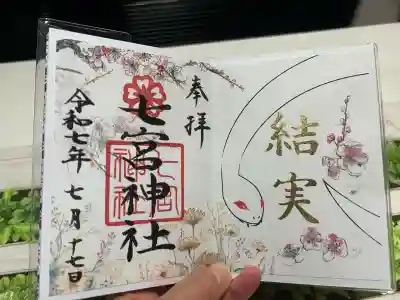 奉拝
七宮神社
令和七年 七月十七日
結実